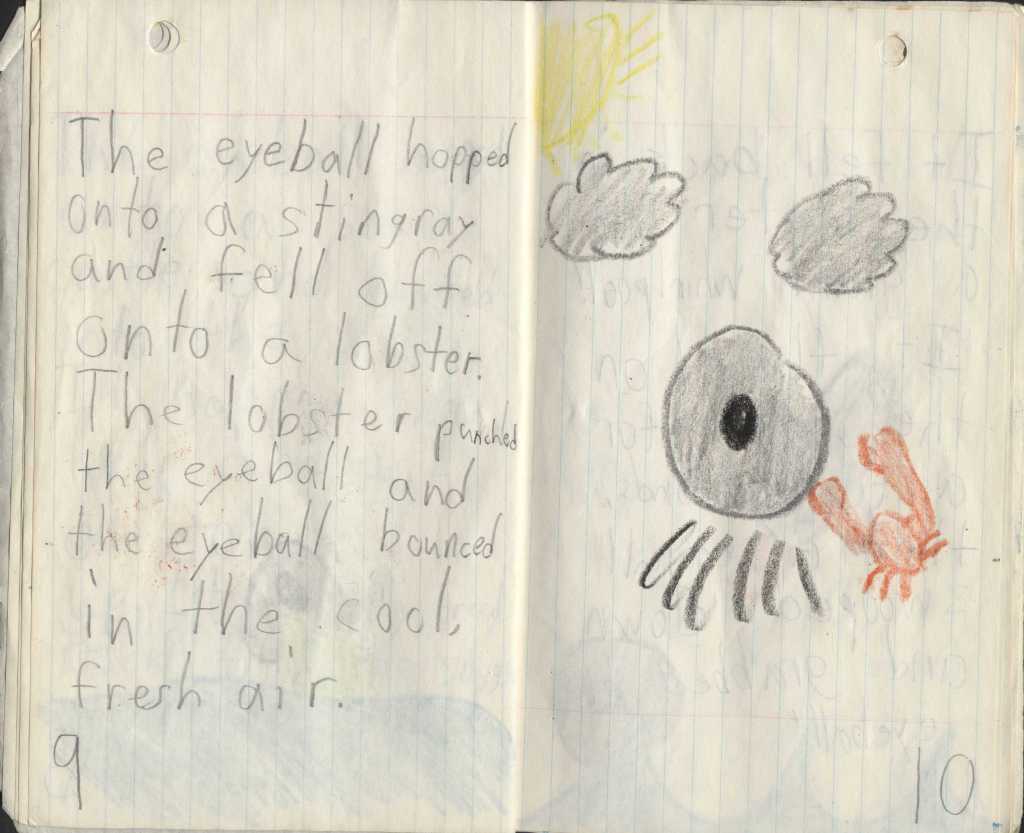 The eyeball hopped
onto a stingray
and fell off
onto a lobster.
The lobster punched
the eyeball and
the eyeball bounced
in the cool,
fresh air.
9
10